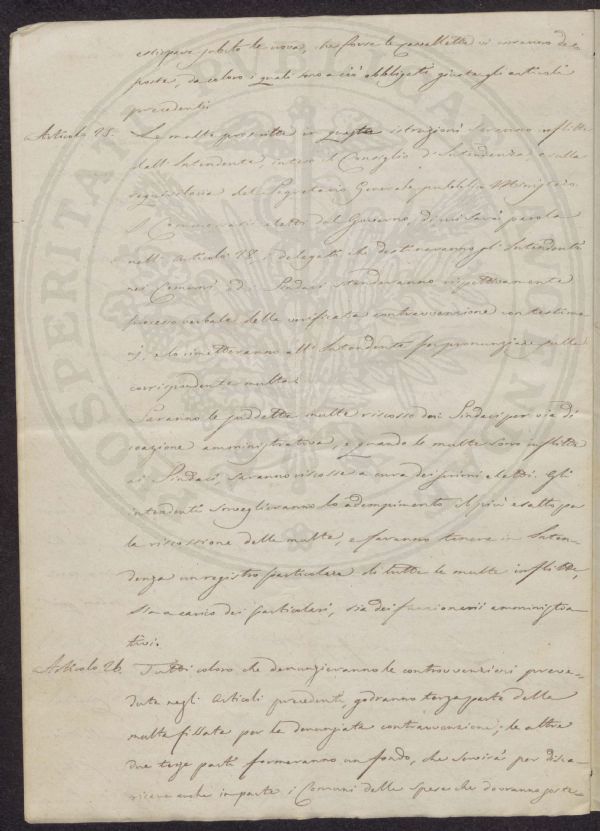 estirpare subito le uova, che forse le cavallette vi avranno de=
poste, da coloro i quali sono a ciò obbligati giusta gli articoli
precedenti
Articolo 25. Le multe prescritte in queste istruzioni saranno inflitte
dall'Intendente, inteso il Consiglio d'Intendenza e sulla
requisitoria del Segretario Generale pubblico Ministero.
I Commessari eletti dal Governo, di cui sarà parola
nell'Articolo 28. i delegati che destineranno gl'Intendenti
nei Comuni ed i Sindaci stenderanno rispettivamente
processo verbale della verificata contravvenzione con testimo=
nj, e lo rimetteranno all'Intendente per pronunziare sulla
corrispondente multa.
Saranno le suddette multe riscosse dai Sindaci per via di
coazione amministrativa, e quando le multe sono inflitte
ai Sindaci, saranno riscosse a cura dei primi eletti. Gl'
intendenti sorveglieranno lo adempimento il più esatto per
la riscossione delle multe, e faranno tenere in Inten=
denza un registro particolare di tutte le multe inflitte,
sia a carico dei particolari, sia dei funzionarii amministra=
tivi.
Articolo 26. Tutti coloro che denunzieranno le contravvenzioni preve=
dute negli Articoli precedenti, godranno terza parte della
multa fissata per la denunziata contravvenzione; le altre
due terze parti formeranno un fondo, che servirà per disca=
ricare anche in parte i Comuni delle spese che dovranno soste=
PROSPERITATI PUBLICAE AUGENDAE